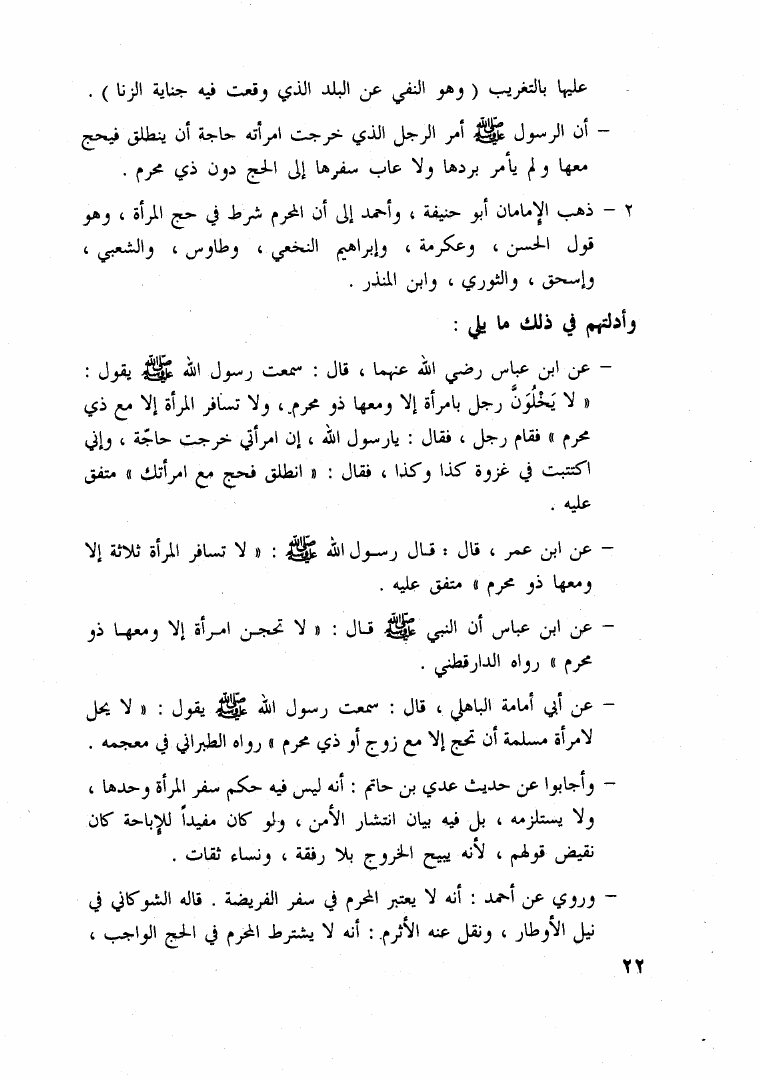 عليها بالتغريب ( وهو النفي عن البلد الذي وقعت فيه جناية الزنا ) .
– أن الرسول ﷺ أمر الرجل الذي خرجت امرأته حاجة أن ينطلق فيحج
معها ولم يأمر بردها ولا عاب سفرها إلى الحج دون ذي محرم .
٢ – ذهب الإمامان أبو حنيفة ، وأحمد إلى أن المحرم شرط في حج المرأة ، وهو
قول الحسن ، وعكرمة ، وإبراهيم النخعي ، وطاوس ، والشعبي ،
وإسحق ، والثوري ، وابن المنذر .
وأدلتهم في ذلك ما يلي :
– عن ابن عباس رضي الله عنهما ، قال : سمعت رسول الله ﷺ يقول :
« لا يَخْلُوَنَّ رجل بامرأة إلا ومعها ذو محرم ، ولا تسافر المرأة إلا مع ذي
محرم » فقام رجل ، فقال : يارسول الله ، إن امرأتي خرجت حاجّة ، وإني
اكتتبت في غزوة كذا وكذا ، فقال : « انطلق فحج مع امرأتك » متفق
عليه .
– عن ابن عمر ، قال : قال رسول الله ﷺ : « لا تسافر المرأة ثلاثة إلا
ومعها ذو محرم » متفق عليه .
– عن ابن عباس أن النبي ﷺ قال : « لا تحجن امرأة إلا ومعها ذو
محرم » رواه الدارقطني .
– عن أبي أمامة الباهلي ، قال : سمعت رسول الله ﷺ يقول : « لا يحل
لامرأة مسلمة أن تحج إلا مع زوج أو ذي محرم » رواه الطبراني في معجمه .
– وأجابوا عن حديث عدي بن حاتم : أنه ليس فيه حكم سفر المرأة وحدها ،
ولا يستلزمه ، بل فيه بيان انتشار الأمن ، ولو كان مفيداً للإباحة كان
نقيض قولهم ، لأنه يبيح الخروج بلا رفقة ، ونساء ثقات .
– وروي عن أحمد : أنه لا يعتبر المحرم في سفر الفريضة . قاله الشوكاني في
نيل الأوطار ، ونقل عنه الأثرم : أنه لا يشترط المحرم في الحج الواجب ،
٢٢